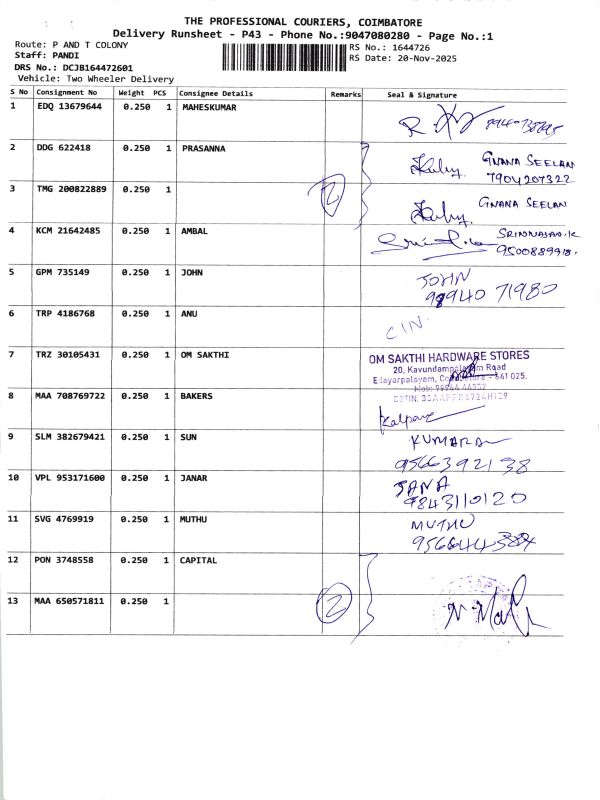 THE PROFESSIONAL COURIERS, COIMBATORE
Delivery Runsheet - P43 - Phone No.:9047080280 - Page No.:1
Route: P AND T COLONY
RS No.: 1644726
Staff: PANDI
RS Date: 20-Nov-2025
DRS No.: DCJB164472601
Vehicle: Two Wheeler Delivery
S No Consignment No Weight PCS Consignee Details Remarks Seal & Signature
1 EDQ 13679644 0.250 1 MAHESKUMAR
2 DDG 622418 0.250 1 PRASANNA GNANA SEELAN
7904207322
3 TMG 200822889 0.250 1 2 GNANA SEELAN
4 KCM 21642485 0.250 1 AMBAL
9500889918.
5 GPM 735149 0.250 1 JOHN JOHN
71980
6 TRP 4186768 0.250 1 ANU
7 TRZ 30105431 0.250 1 OM SAKTHI OM SAKTHI HARDWARE STORES
20, Kavundampalayam Road
Edayarpalayam, Coimbatore - 641 025.
8 MAA 708769722 0.250 1 BAKERS
9 SLM 382679421 0.250 1 SUN KUMARA
9566392138
10 VPL 953171600 0.250 1 JANAR JANA
9843110120
11 SVG 4769919 0.250 1 MUTHU MUTHU
12 PON 3748558 0.250 1 CAPITAL
13 MAA 650571811 0.250 1 2